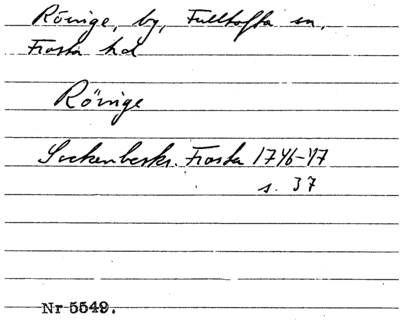 Rövige, by, Fulltofta sn,
Frosta hd
Rövige
Sockenbeskr. Frosta 1746-47
s. 37
Nr 5549.